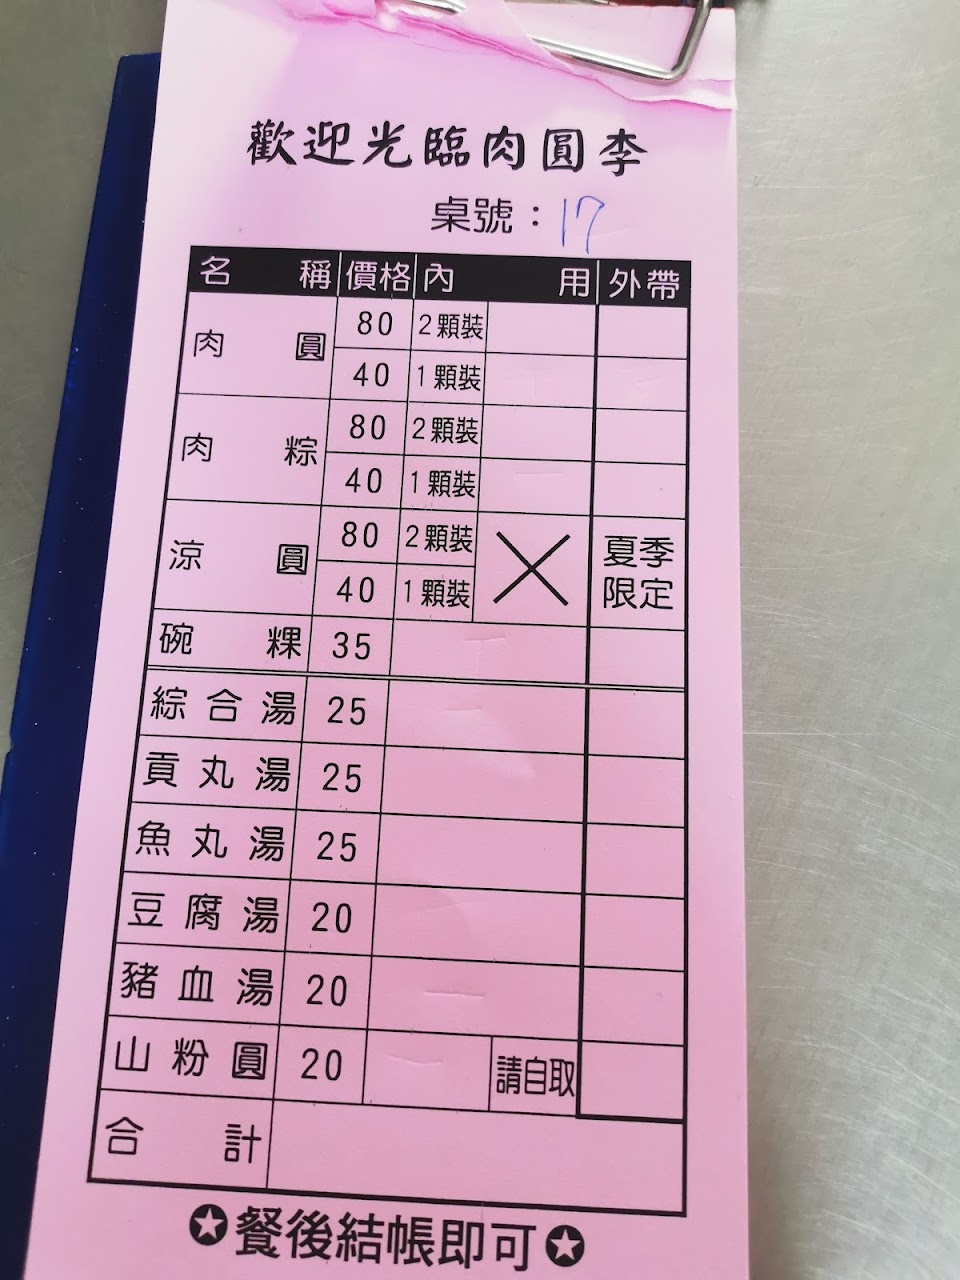 歡迎光臨肉圓李
桌號：17
名稱 價格 內用 外帶
肉圓 80 2顆裝
40 1顆裝
肉粽 80 2顆裝
40 1顆裝
涼圓 80 2顆裝 夏季
40 1顆裝 限定
碗粿 35
綜合湯 25
貢丸湯 25
魚丸湯 25
豆腐湯 20
豬血湯 20
山粉圓 20 請自取
合計
✪餐後結帳即可✪